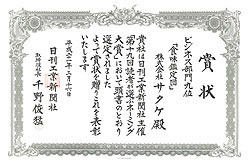 賞状
ビジネス部門九位
「食味鑑定団」
株式会社サクケ殿
貴社は日刊工業新聞社主催
第十九回読者が選ぶネーミング
大賞において頭書のとおり
選定されました
よって賞状を贈りこれを表彰
いたします
平成二十一年三月十六日
日刊工業新聞社
取締役社長
千野俊猛